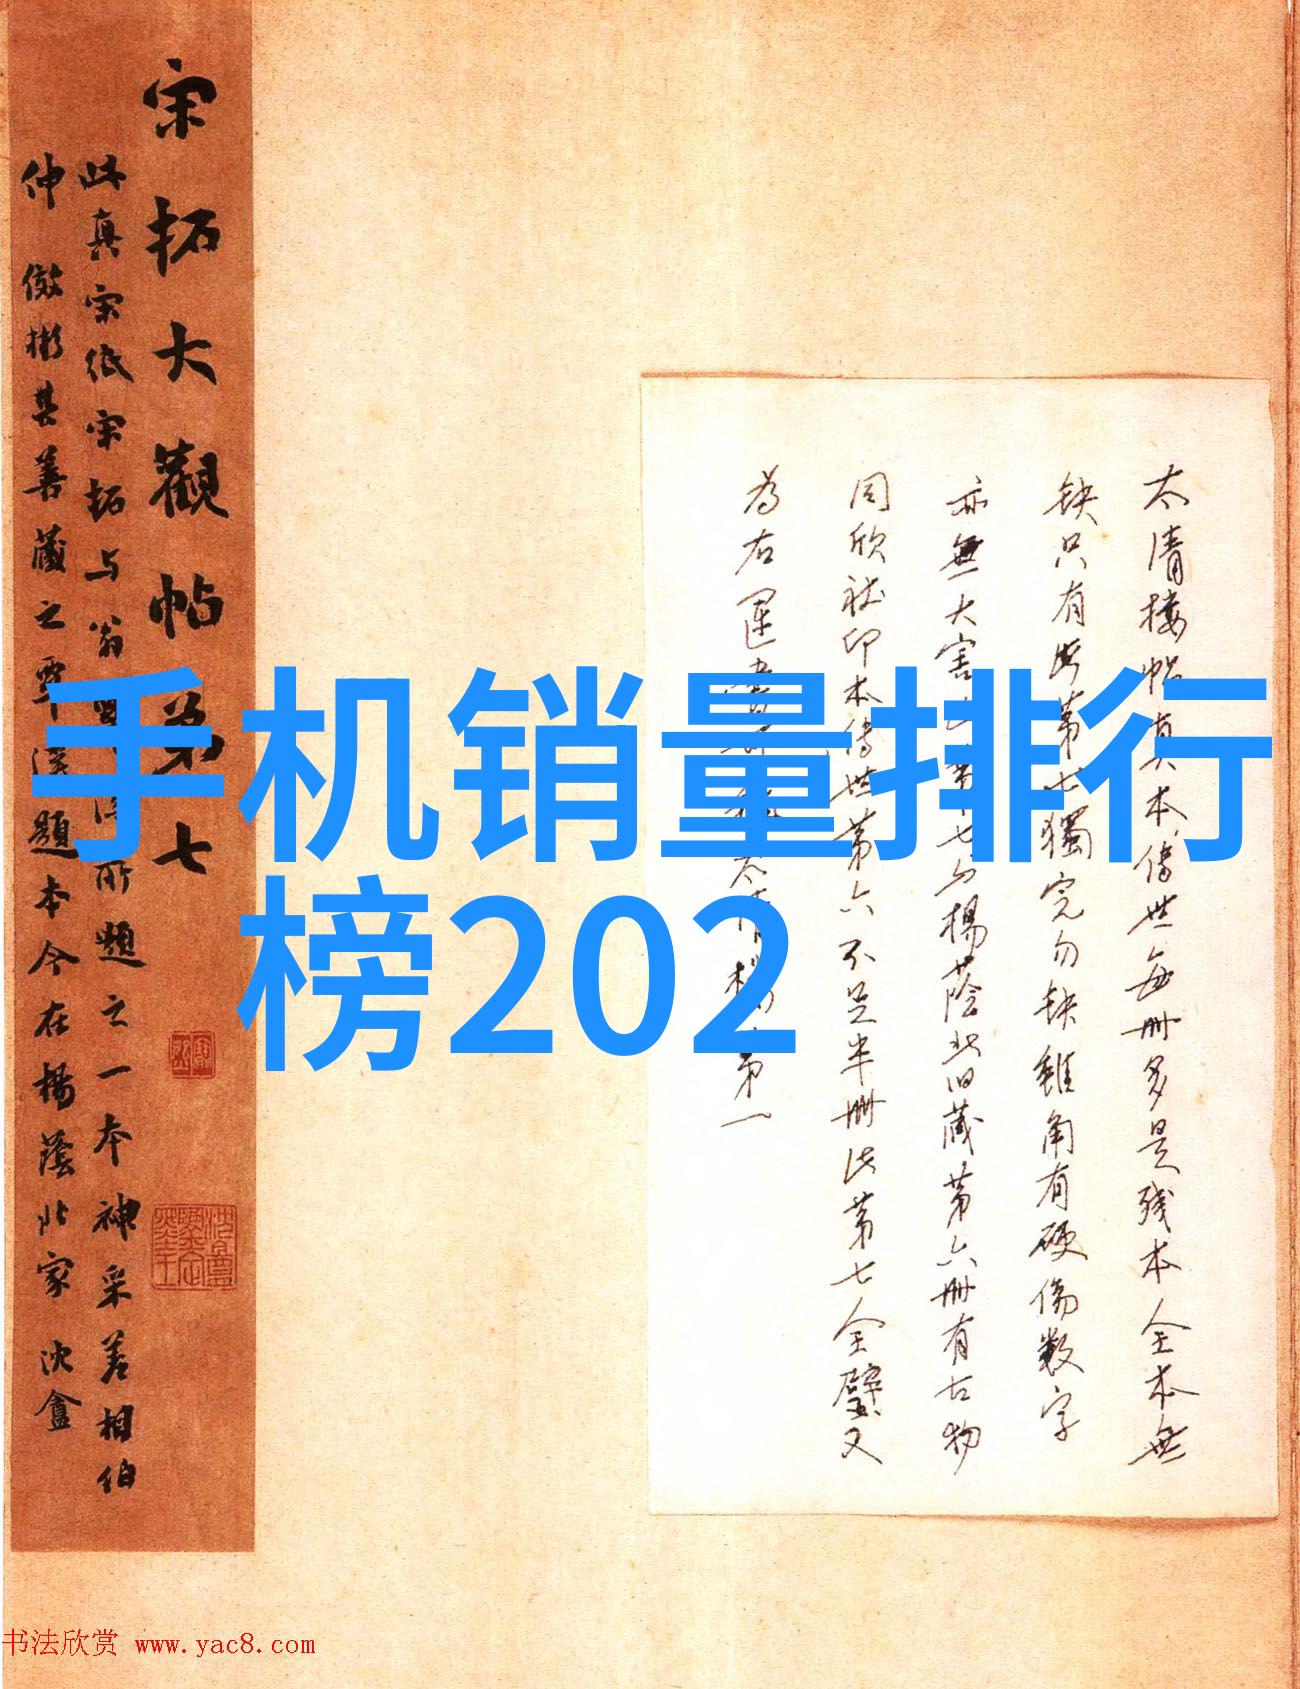 手机销量排行
榜202
宋拓大觀帖第七
此真宋紙宋拓与翁
所題之一本神采差相伯
仲
其善藏之
題本今在楊蔭北家
太清楼帖真本傳世每册多是残本全本無
缺只有此第七獨完勿缺雖角有硬傷数字
亦無大害
七与楊蔭北旧藏第六册有古物
同欣社印本傳世第六不足半册此第七全璧又
為右軍書
第一
书法欣赏 www.yac8.com